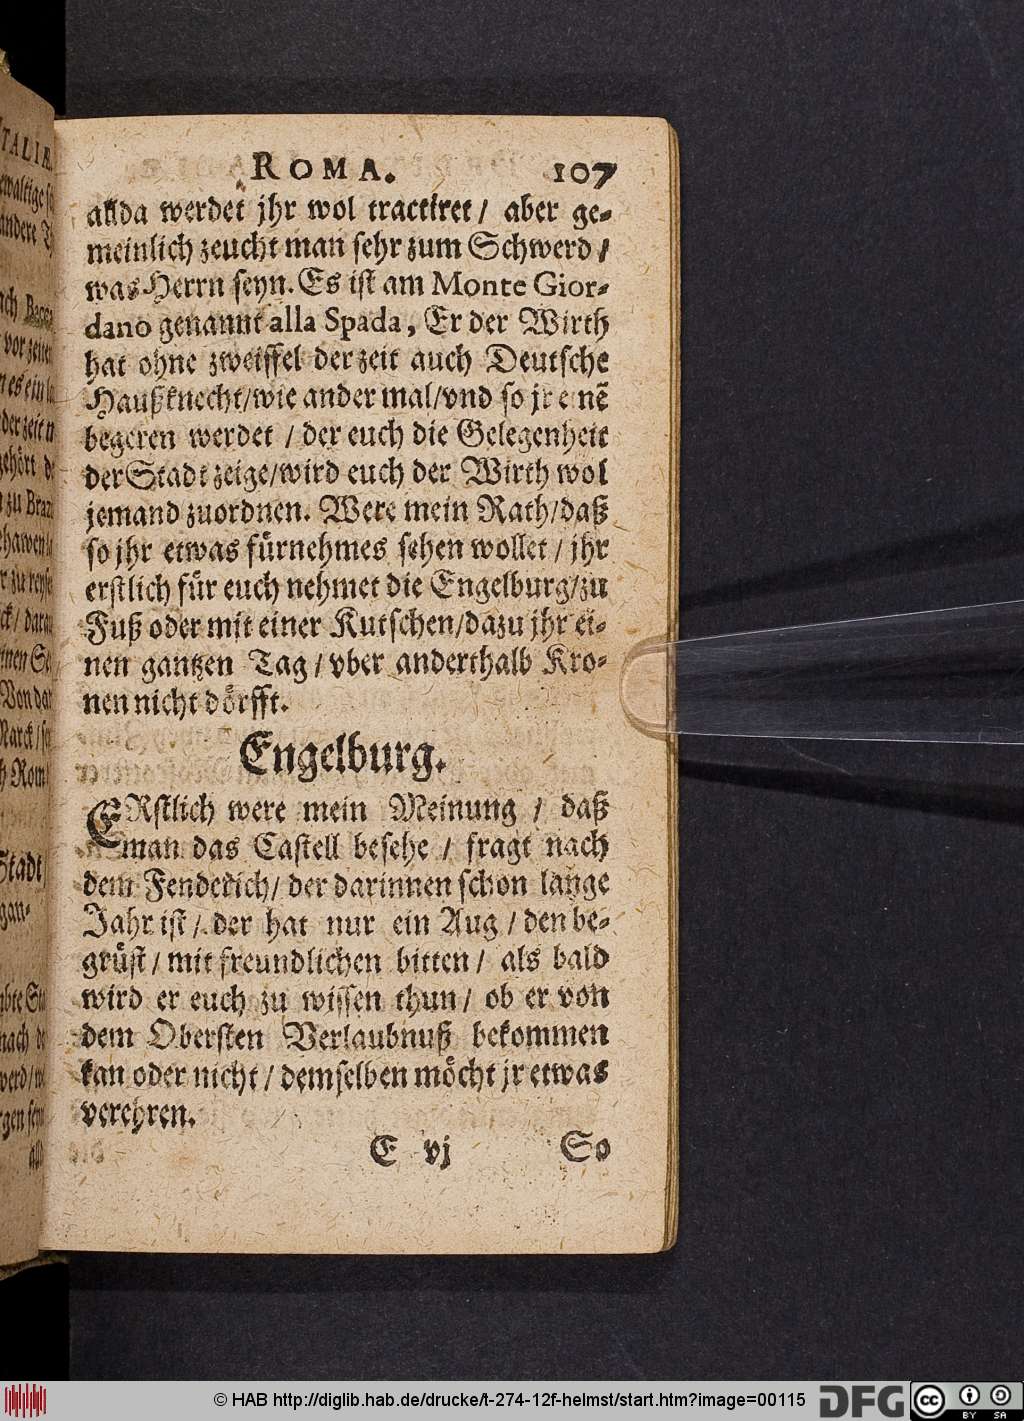 ROMA. 107
allda werdet jhr wol tractiret / aber ge-
meinlich zeucht man sehr zum Schwerd /
was Herrn seyn. Es ist am Monte Gior-
dano genannt alla Spada, Er der Wirth
hat ohne zweiffel derzeit auch Deutsche
Haußknecht/wie ander mal/vnd so jr einẽ
begeren werdet / der euch die Gelegenheit
der Stadt zeige/wird euch der Wirth wol
jemand zuordnen. Were mein Rath/daß
so jhr etwas fürnehmes sehen wollet / jhr
erstlich für euch nehmet die Engelburg/zu
Fuß oder mit einer Kutschen/dazu jhr ei-
nen gantzen Tag / vber anderthalb Kro-
nen nicht dörfft.
Engelburg.
ERstlich were mein Meinung / daß
man das Castell besehe / fragt nach
dem Fenderich/ der darinnen schon lange
Jahr ist / der hat nur ein Aug / den be-
grüst / mit freundlichen bitten / als bald
wird er euch zu wissen thun / ob er von
dem Obersten Verlaubnuß bekommen
kan oder nicht / demselben möcht jr etwas
verehren.
E vj So
© HAB http://diglib.hab.de/drucke/t-274-12f-helmst/start.htm?image=00115
DFG
cc BY SA